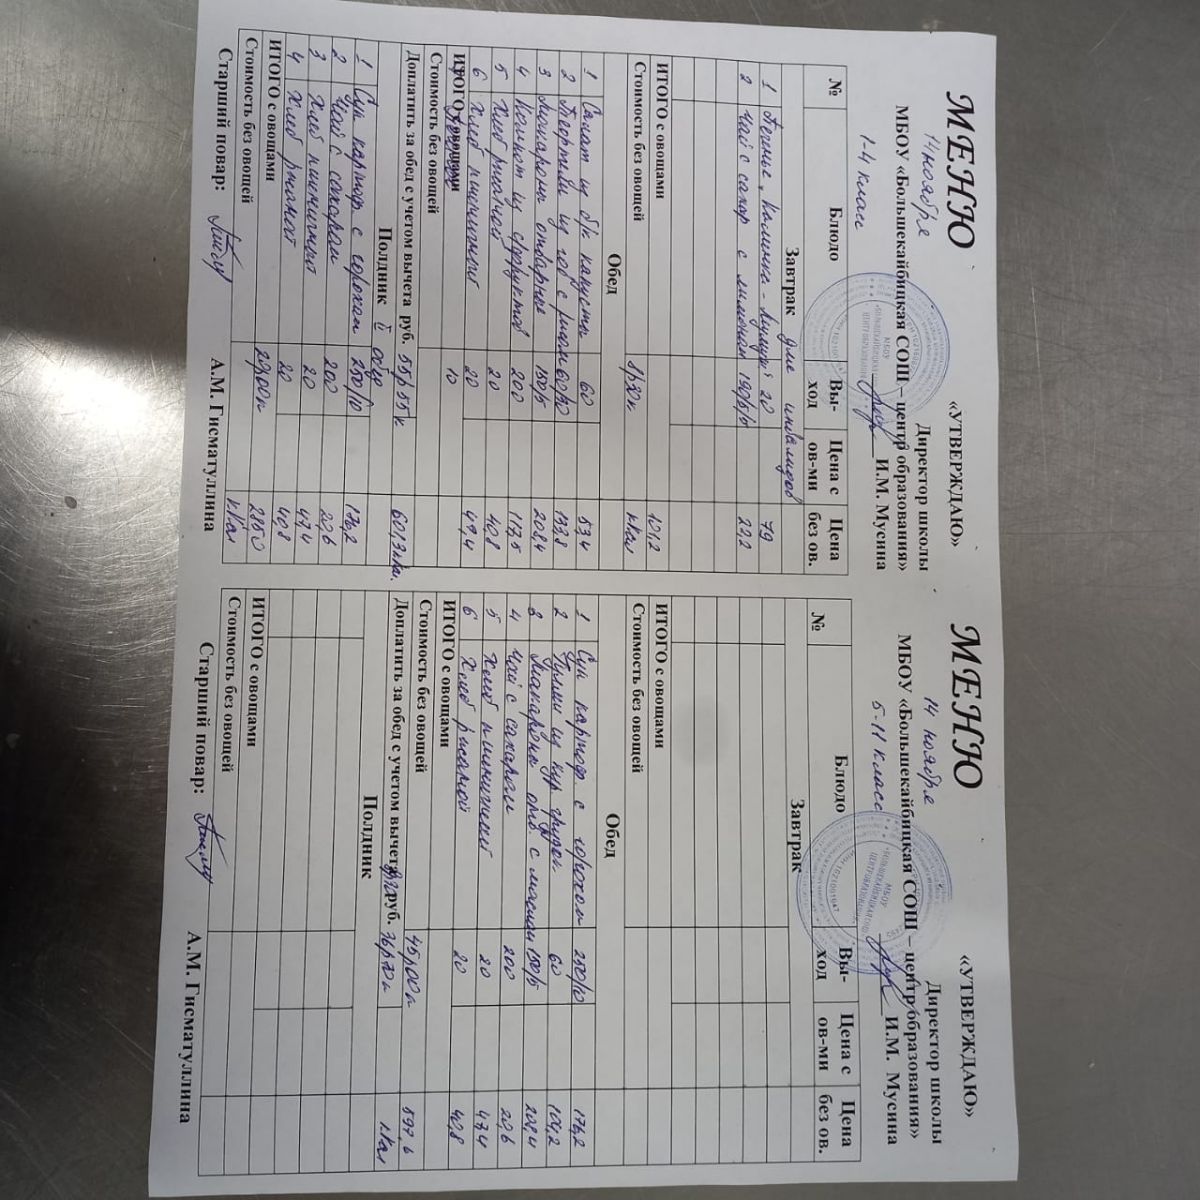 МЕНЮ
«УТВЕРЖДАЮ»
14 ноября
Директор школы
МБОУ «Большекайбицкая СОШ – центр образования»
1-4 класс
И.М. Мусина
№ Блюдо Вы-ход Цена с ов-ми Цена без ов.
Завтрак для инвалидов
1 Печенье, Калинка - 20 79
2 Чай с сахар с лимоном 190/5/5 22,2
ИТОГО с овощами 101,2
Стоимость без овощей ккал
Обед
1 Салат из б/к капусты 60 53,4
2 60/30 133,8
3 Макароны отварные 150/5 208,4
4 Компот из фруктов 200 113,5
5 Хлеб ржаной 20 40,8
6 Хлеб пшеничный 20 47,4
ИТОГО с овощами 10
Стоимость без овощей
Доплатить за обед с учетом вычета руб. 55р55к
Полдник обед
1 Суп картоф. с горохом 250/10 176,2
2 Чай с сахаром 200 20,6
3 Хлеб пшеничный 20 47,4
4 Хлеб ржаной 20 40,8
ИТОГО с овощами
Стоимость без овощей
Старший повар: А.М. Гисматуллина
МЕНЮ
«УТВЕРЖДАЮ»
14 ноября
Директор школы
МБОУ «Большекайбицкая СОШ – центр образования»
5-11 класс
И.М. Мусина
№ Блюдо Вы-ход Цена с ов-ми Цена без ов.
Завтрак
ИТОГО с овощами
Стоимость без овощей
Обед
1 Суп картоф. с горохом 250/10 176,2
2 Гуляш из кур грудок 60 104,2
3 Макароны отв. с маслом 150/5 208,4
4 Чай с сахаром 200 20,6
5 Хлеб пшеничный 20 47,4
6 Хлеб ржаной 20 40,8
ИТОГО с овощами
Стоимость без овощей 45р00к 597,6
Доплатить за обед с учетом вычета руб. ккал
Полдник
ИТОГО с овощами
Стоимость без овощей
Старший повар: А.М. Гисматуллина